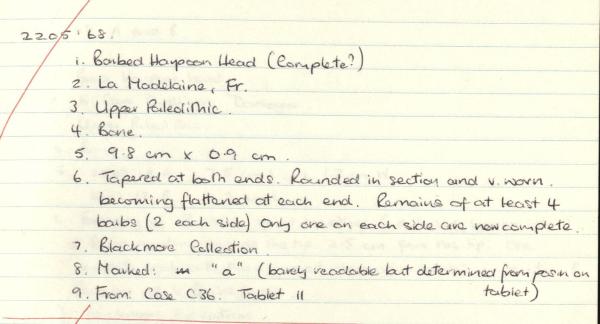 2205.68.
1. Barbed Harpoon Head (Complete?)
2. La Madelaine, Fr.
3. Upper Paleolithic.
4. Bone.
5. 9.8 cm x 0.9 cm.
6. Tapered at both ends. Rounded in section and v. worn.
becoming flattened at each end. Remains of at least 4
barbs (2 each side) Only one on each side are now complete.
7. Blackmore Collection.
8. Marked: "a" (barely readable but determined from posn on
tablet)
9. From Case C36. Tablet 11